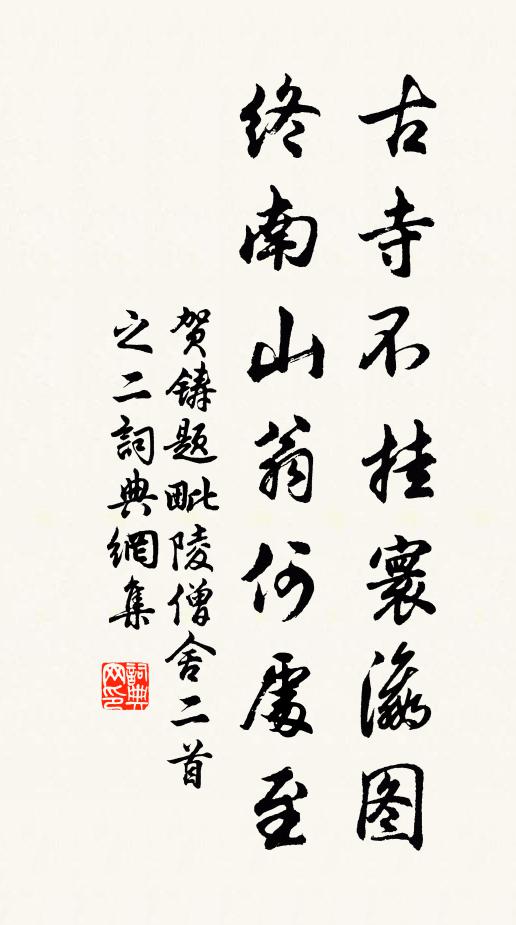 古寺不挂寰瀛图
终南山翁何處至
贺鑄題毗陵僧舍二首
之二詞典網集
詞典網印